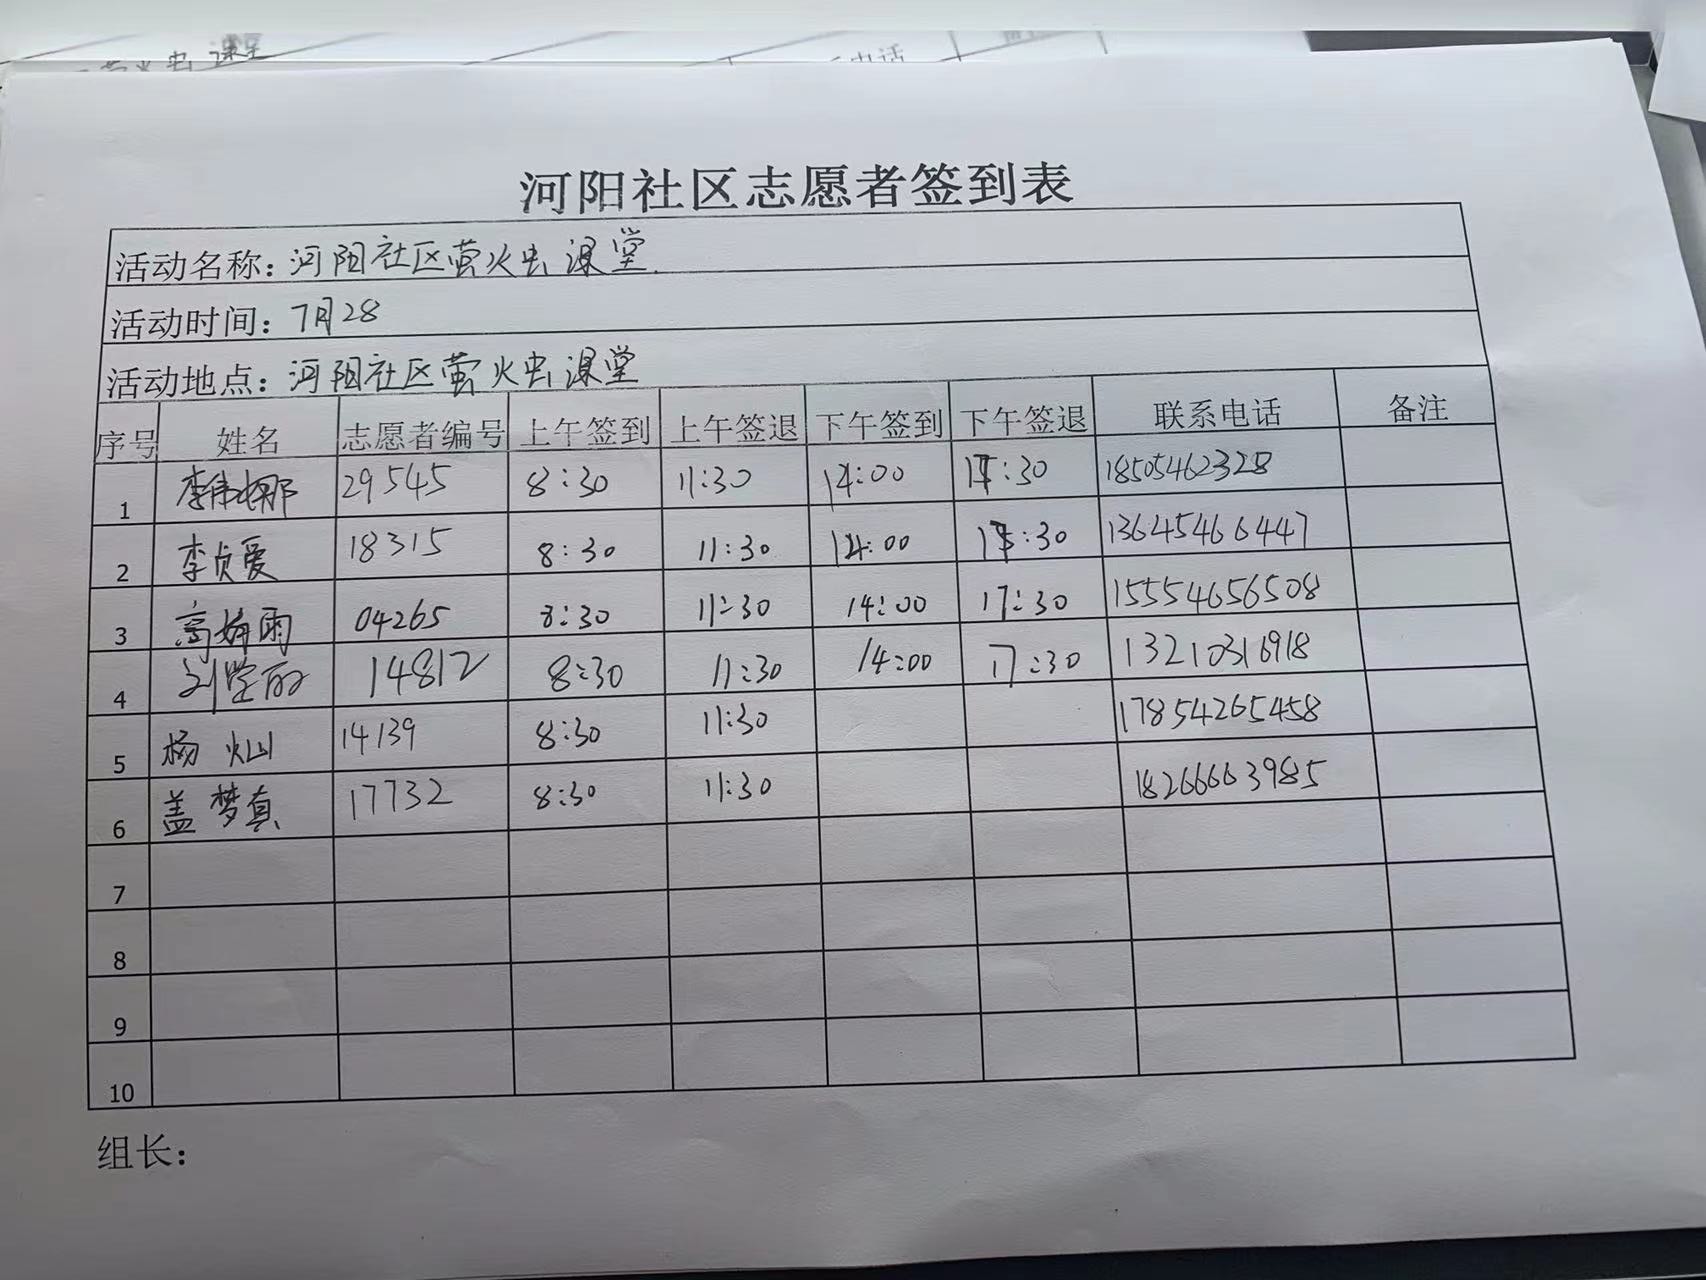 课堂
电话
河阳社区志愿者签到表
活动名称：河阳社区萤火虫课堂
活动时间：7月28
活动地点：河阳社区萤火虫课堂
序号 姓名 志愿者编号 上午签到 上午签退 下午签到 下午签退 联系电话 备注
1 李伟娜 29545 8:30 11:30 14:00 17:30 18505462328
2 李贞爱 18315 8:30 11:30 14:00 17:30 13645466447
3 高 雨 04265 8:30 11:30 14:00 17:30 15554656508
4 刘学丽 14812 8:30 11:30 14:00 17:30 13210316918
5 杨灿 14139 8:30 11:30 17854265458
6 盖梦真 17732 8:30 11:30 18266663985
7
8
9
10
组长：